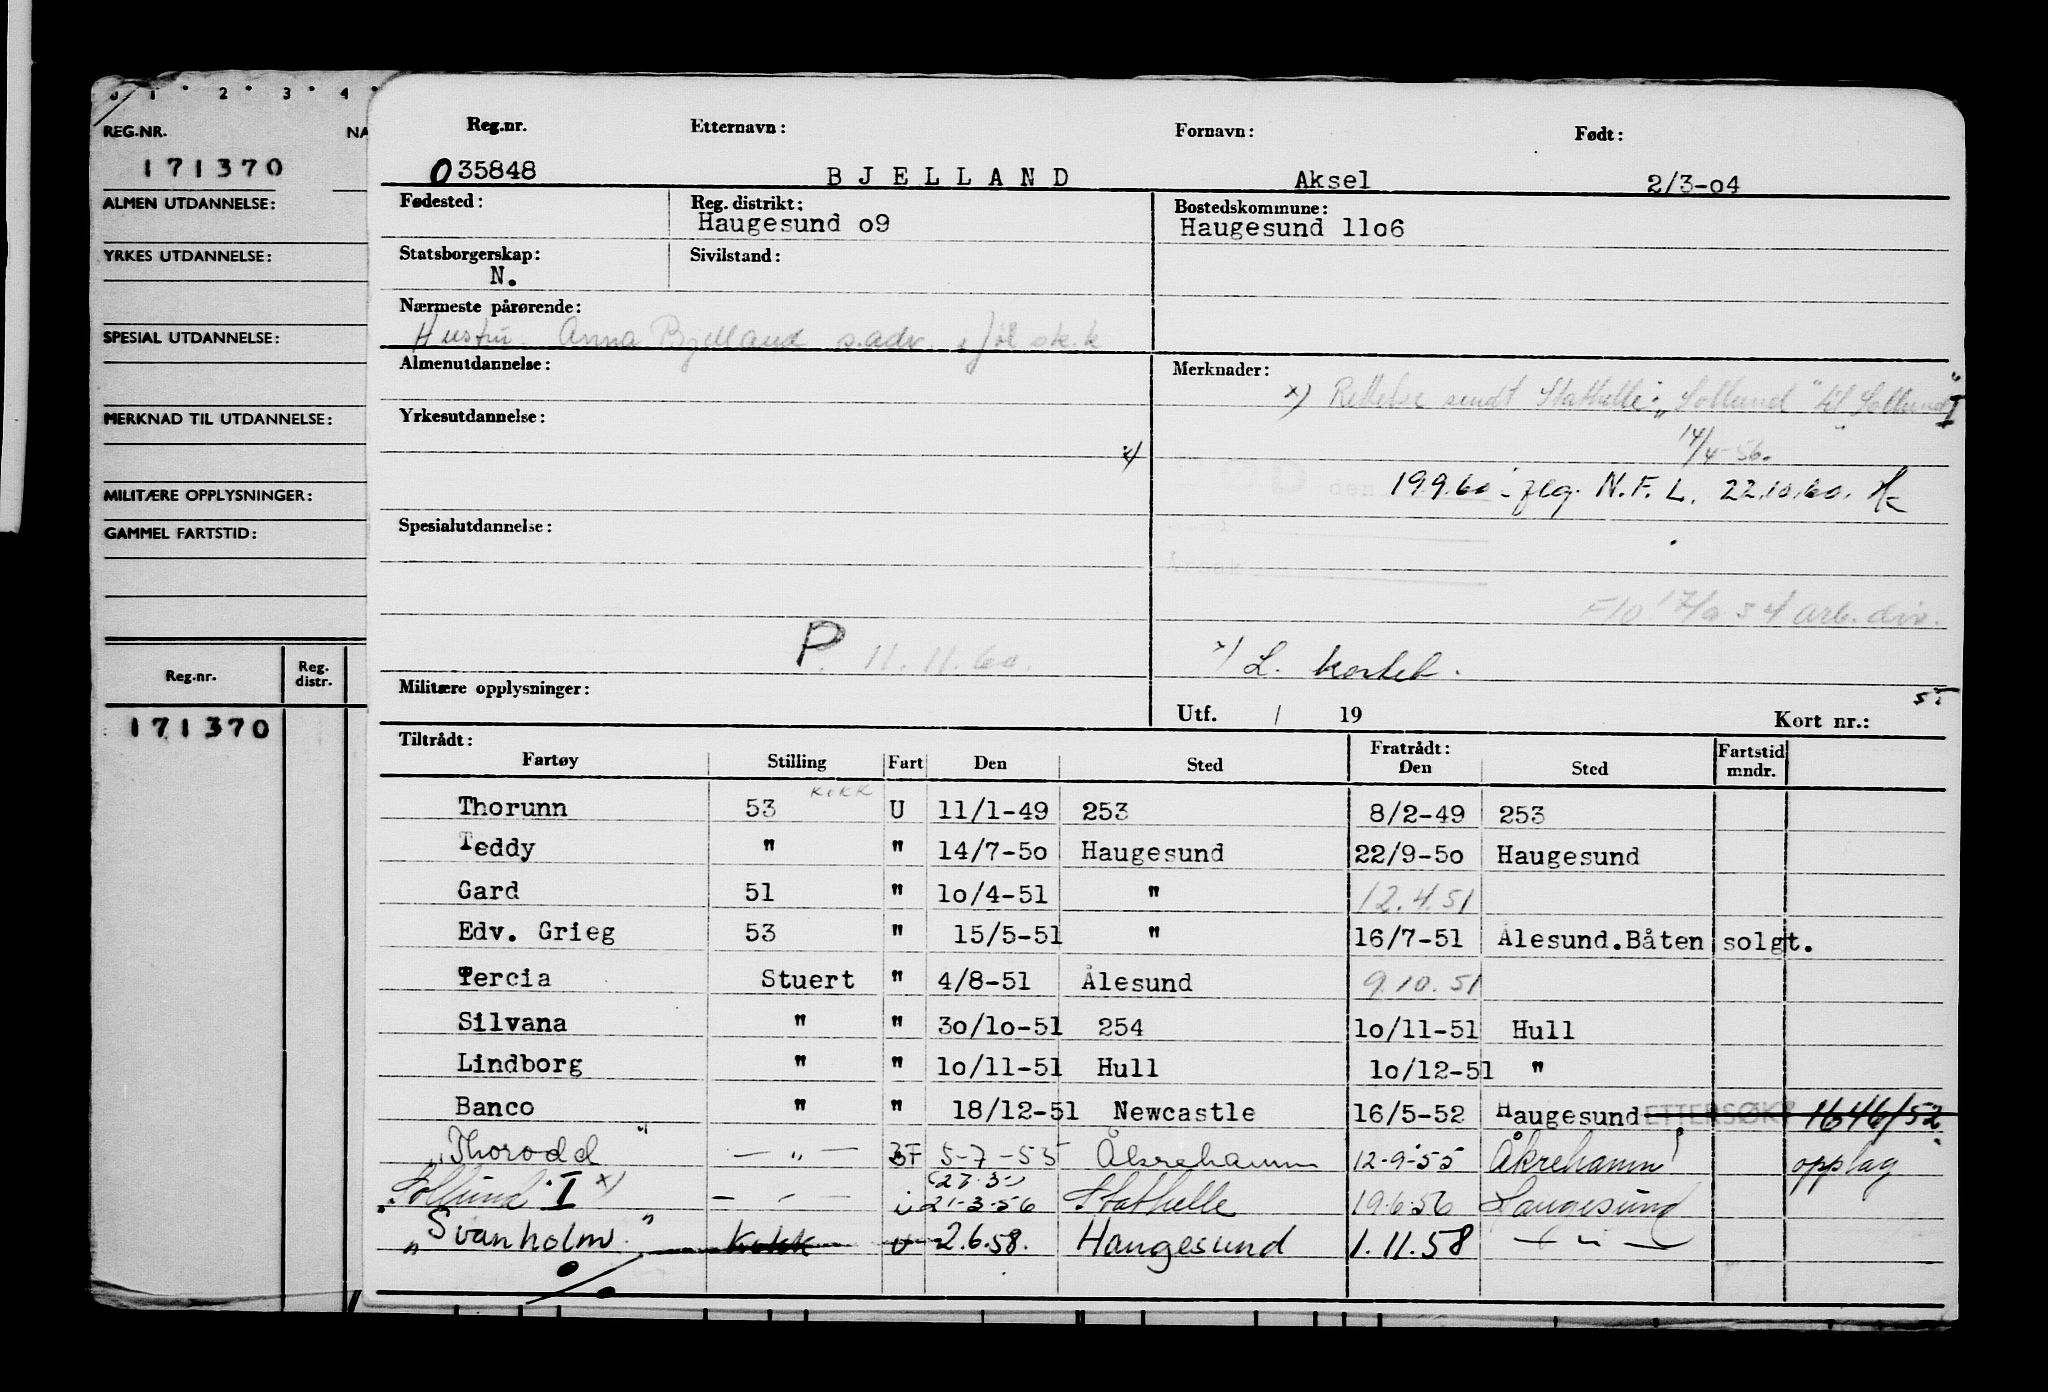 0 1 2 3 4
REG.NR. NA
171370
ALMEN UTDANNELSE:
YRKES UTDANNELSE:
SPESIAL UTDANNELSE:
MERKNAD TIL UTDANNELSE:
MILITÆRE OPPLYSNINGER:
GAMMEL FARTSTID:
Reg.nr. Reg. distr.
171370
Reg.nr. Etternavn: Fornavn: Født:
035848 BJELLAND Aksel 2/3-o4
Fødested: Reg. distrikt: Bostedskommune:
Haugesund o9 Haugesund 11o6
Statsborgerskap: Sivilstand:
N.
Nærmeste pårørende:
Hustru. Anna Bjelland s.adr.
Almenutdannelse: Merknader:
x) Rettelse sendt Stathelle: „Sollund" til Sollund I"
Yrkesutdannelse:
14/4-56.
x)
DØD den 19.9.60 - flg. N.F.L. 22.10.60.
Spesialutdannelse:
Årsak
F10 17/9 54 arb. div.
P. 11.11.60. x) L. kartek.
Militære opplysninger:
Utf. / 19 Kort nr.:
Tiltrådt: Fratrådt: Fartstid
Fartøy Stilling Fart Den Sted Den Sted mndr.
Kokk
Thorunn 53 U 11/1-49 253 8/2-49 253
Teddy " " 14/7-5o Haugesund 22/9-5o Haugesund
Gard 51 " 1o/4-51 " 12.4.51
Edv. Grieg 53 " 15/5-51 " 16/7-51 Ålesund.Båten solgt.
Tercia Stuert " 4/8-51 Ålesund 9.10.51
Silvana " " 3o/1o-51 254 1o/11-51 Hull
Lindborg " " 1o/11-51 Hull 1o/12-51 "
Banco " " 18/12-51 Newcastle 16/5-52 Haugesund ETTERSØKT 1646/52
„Thorodd" — " — BF 5-7-55 Åkrehamn 12-9-55 Åkrehamn opplag
„Sollund" I x) — " — 21-3-56 Stathelle 19.6.56 Haugesund
„Svanholm" Kokk U 2.6.58. Haugesund 1.11.58 — " —